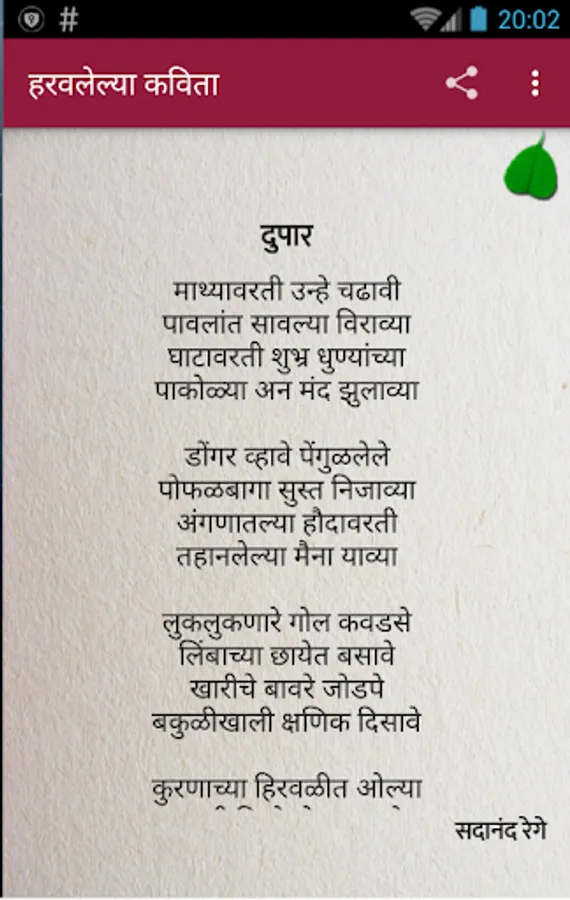 # 20:02
हरवलेल्या कविता
दुपार
माथ्यावरती उन्हे चढावी
पावलांत सावल्या विराव्या
घाटावरती शुभ्र धुण्यांच्या
पाकोळ्या अन मंद झुलाव्या
डोंगर व्हावे पेंगुळलेले
पोफळबागा सुस्त निजाव्या
अंगणातल्या हौदावरती
तहानलेल्या मैना याव्या
लुकलुकणारे गोल कवडसे
लिंबाच्या छायेत बसावे
खारीचे बावरे जोडपे
बकुळीखाली क्षणिक दिसावे
कुरणाच्या हिरवळीत ओल्या
सदानंद रेगे